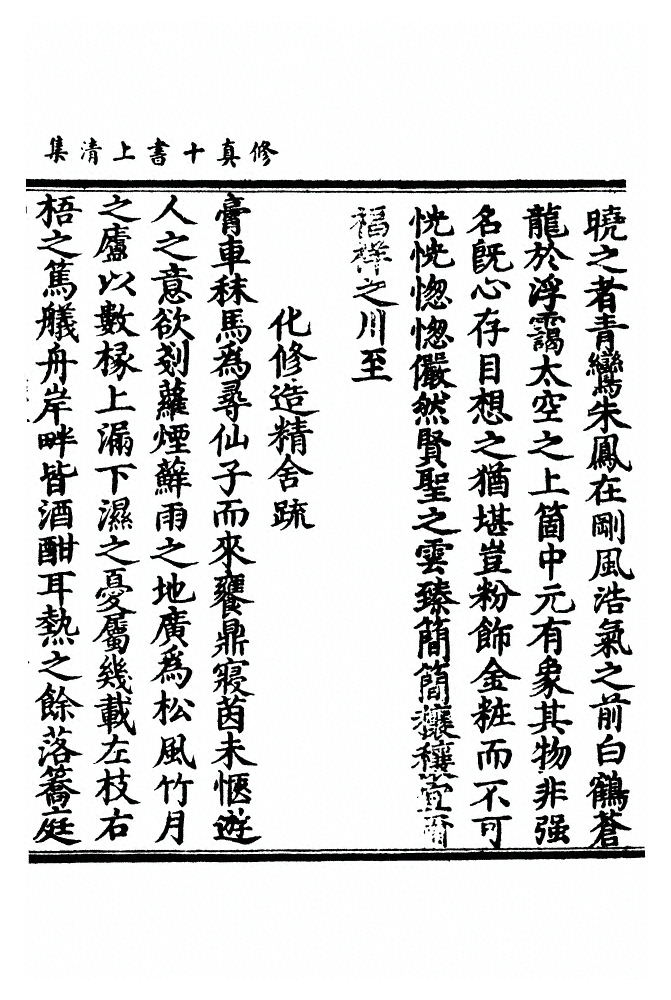 修真十書上清集
曉之者青鸞朱鳳在剛風浩氣之前白鶴蒼
龍於浮靄太空之上箇中元有象其物非强
名旣心存目想之猶堪豈粉飾金粧而不可
恍恍惚惚儼然賢聖之雲臻簡簡穰穰宜爾
福祥之川至
化修造精舍疏
膏車秣馬為尋仙子而來饔鼎寢茵未愜遊
人之意欲剗蘿煙蘚雨之地廣為松風竹月
之廬以數椽上漏下濕之憂屬幾載左枝右
梧之篤艤舟岸畔皆酒酣耳熱之餘落筭庭